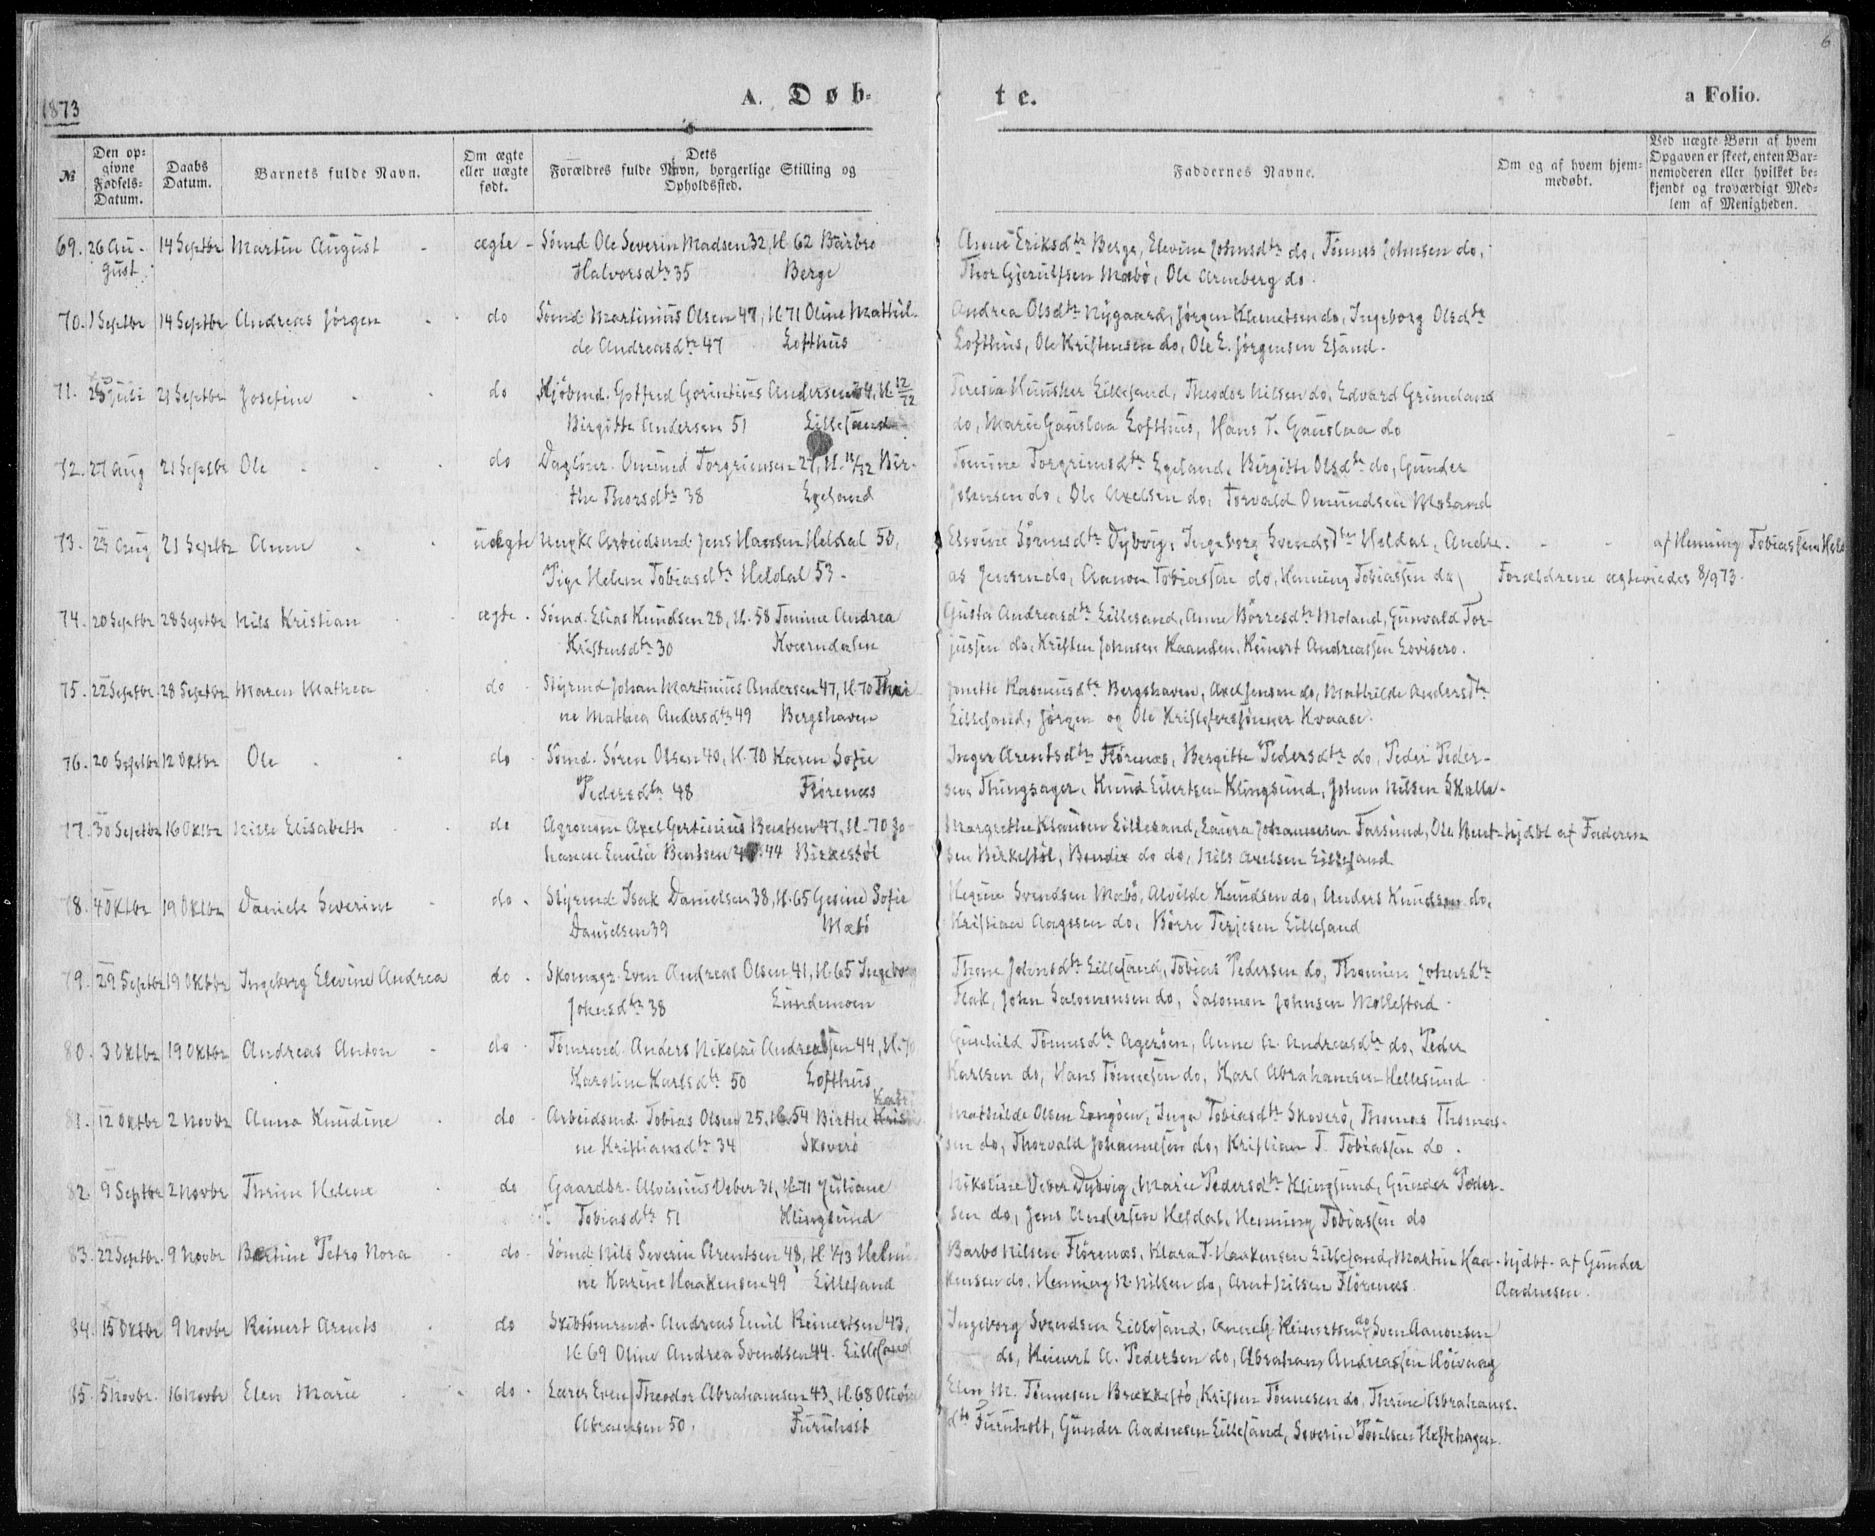 6
1873
A. Døb-
te.
a Folio.
№
Den op-
givne
Fødsels-
Datum.
Daabs
Datum.
Barnets fulde Navn.
Om ægte
eller uægte
født.
Dets
Forældres fulde Navn, borgerlige Stilling og
Opholdssted.
Faddernes Navne.
Om og af hvem hjem-
medøbt.
Ved uægte Børn af hvem
Opgaven er skeet, enten Bar-
nemoderen eller hvilket be-
kjendt og troværdigt Med-
lem af Menigheden.
69. 26 Au- 14 Septbr Martin August - ægte - Sømd Ole Severin Madsen 32, K. 62 Barbro Anne Eriksdtr Berge, Elevine Johnsdtr do, Tønnes Johnsen do,
gust Halvorsdtr 35 Berge Thor Gjerulfsen Mæbø, Ole Arneberg do.
70. 1 Septbr 14 Septbr Andreas Jørgen - - do Sømd Martinius Olsen 47, K. 71 Oline Mathil- Andrea Olsdtr Nygaard, Jørgen Knuetsen do, Ingeborg Olsdtr
de Andreasdtr 47 Lofthus Lofthus, Ole Kristensen do, Ole E. Jørgensen Esand.
71. Juli 21 Septbr Josefine - - do Kjøbmd. Gotfred Andersen 44, K. 12/72 Teresia Lillesand, Theodor Nilsen do, Edvard Grimeland
Birgitte Andersen 51 Lillesand do, Marie Gauslaa Lofthus, Hans T. Gauslaa do
72. 27 Aug 21 Septbr Ole - - - do Dagløner. Omund Torgrimsen 27, K. /72 Bir- Tomine Torgrimsdtr Egeland, Birgitte Olsdtr do, Gunder
the Thorsdtr 38 Egeland Johnsen do, Ole Axelsen do, Torvald Omundsen Moland
73. 23 Aug 21 Septbr Anne - - uægte Ungk. Arbeidsmd. Jens Hansen Heldal 50, Elevine Sørensdtr Dybvig, Ingeborg Svendsdtr Heldal, Andre- - - af Henning Tobiassen Held
Pige Helene Tobiasdtr Heldal 53. as Jensen do, Aanon Tobiassen do, Henning Tobiassen do Forældrene ægteviedes 8/9 73.
74. 20 Septbr 28 Septbr Nils Kristian - - ægte - Sømd. Elias Knudsen 28, K. 58 Tomine Andrea Gusta Andreasdtr Lillesand, Anne Børresdtr Moland, Gunvald Tor-
Kristensdtr 30 Kværndalen jussen do, Kristen Johnsen Kaanden, Reinert Andreassen Lovisero.
75. 22 Septbr. 28 Septbr Maren Mathea do - Styrmd Johan Martinius Andersen 47, K. 70 Thri- Jonette Rasmusdtr Bergshaven, Axel Jensen do, Mathilde Andersdtr
ne Mathea Andersdtr 49 Bergshaven Lillesand, Jørgen og Ole Kristofersønner Kvaase.
76. 20 Septbr 12 Oktbr Ole - - do - Sømd. Søren Olsen 40, K. 70 Karen Sofie Inger Arentsdtr Florenæs, Bergitte Pedersdtr do, Peder Peder-
Pedersdtr 48 Florenæs sen Thingsager, Knud Eilertsen Klingsund, Johan Nilsen Skalle-
77. 30 Septbr 16 Oktbr Nille Elisabeth - do Agronom Axel Gertinius Bentsen 47, K. 70 Jo- Margrethe Klausen Lillesand, Laura Johannesen Farsund, Ole Bent- hjdbt af Faderen
hanne Emilie Bentsen 44 Birkestøl sen Birkestøl, Bendix do do, Nils Axelsen Lillesand
78. 4 Oktbr 19 Oktbr Daniele Severine - do - Styrmd Isak Danielsen 38, K. 65 Gesine Sofie Regine Svendsen Mæbø, Alvilde Knudsen do, Anders Knudsen do,
Danielsen 39 Mæbø Kristian Aagesen do, Børre Terjesen Lillesand
79. 29 Septbr 19 Oktbr Ingeborg Elevine Andrea do - Skomagr. Even Andreas Olsen 41, K. 65 Ingeborg Thone Johnsdtr Lillesand, Tobias Pedersen do, Thomine Johnsdtr
Johnsdtr 38 Lundemoen Flak, John Salomonsen do, Salomon Johnsen Mollestad.
80. 3 Oktbr 19 Oktbr Andreas Anton - do - Tømrmd. Anders Nikolai Andreassen 44, K. 70 Gunhild Tønnesdtr Agerøen, Anne A. Andreasdtr do, Peder
Karoline Karlsdtr 50 Lofthus Karlsen do, Hans Tønnesen do, Karl Abrahamsen Hellesund
81. 12 Oktbr 2 Novbr Anna Knudine - do - Arbeidsmd. Tobias Olsen 25, K. 54 Birthe Kris Kathri- Mathilde Olsen Langøen, Inga Tobiasdtr Skoverø, Thomas Thomas-
ne Kristiansdtr 34 Skoverø sen do, Thorvald Johannesen do, Kristian T. Tobiassen do.
82. 9 Septbr 2 Novbr Thrine Helene - do Gaardbr. Alvinius Veber 31, K. 71 Juliane Nikoline Veber Dybvig, Marie Pedersdtr Klingsund, Gunder Peder-
Tobiasdtr 51 Klingsund sen do, Jens Andersen Heldal, Henning Tobiassen do
83. 22 Septbr. 9 Novbr Bertine Petra Nora - do - Sømd Nils Severin Arentsen 48, K. 1/73 Helmi- Barbo Nilsen Florenæs, Klara T. Haakensen Lillesand, Martin Haa- hjdbt. af Gunder
ne Karine Haakensen 49 Lillesand kensen do, Henning N. Nilsen do, Arnt Nilsen Florenæs. Aadnesen.
84. 15 Oktbr 9 Novbr Reinert Arents - do Skibtømrmd. Andreas Emil Reinertsen 43, Ingeborg Svendsen Lillesand, Anne G. Reinertsen do, Sven Aanonsen
K. 69 Oline Andrea Svendsen 44. Lillesand do, Reinert A. Pedersen do, Abraham Andreassen Høivaag
85. 5 Novbr. 16 Novbr Elen Marie - - do - Lærer Even Theodor Abrahamsen 43, K. 68 Elen M. Tønnesen Brækkestø, Kristen Tønnesen do, Thrine Abrahams-
Abramsen 50. Furuholt dtr Furuholt, Gunder Aadnesen Lillesand, Severin Poulsen Hestehagen.